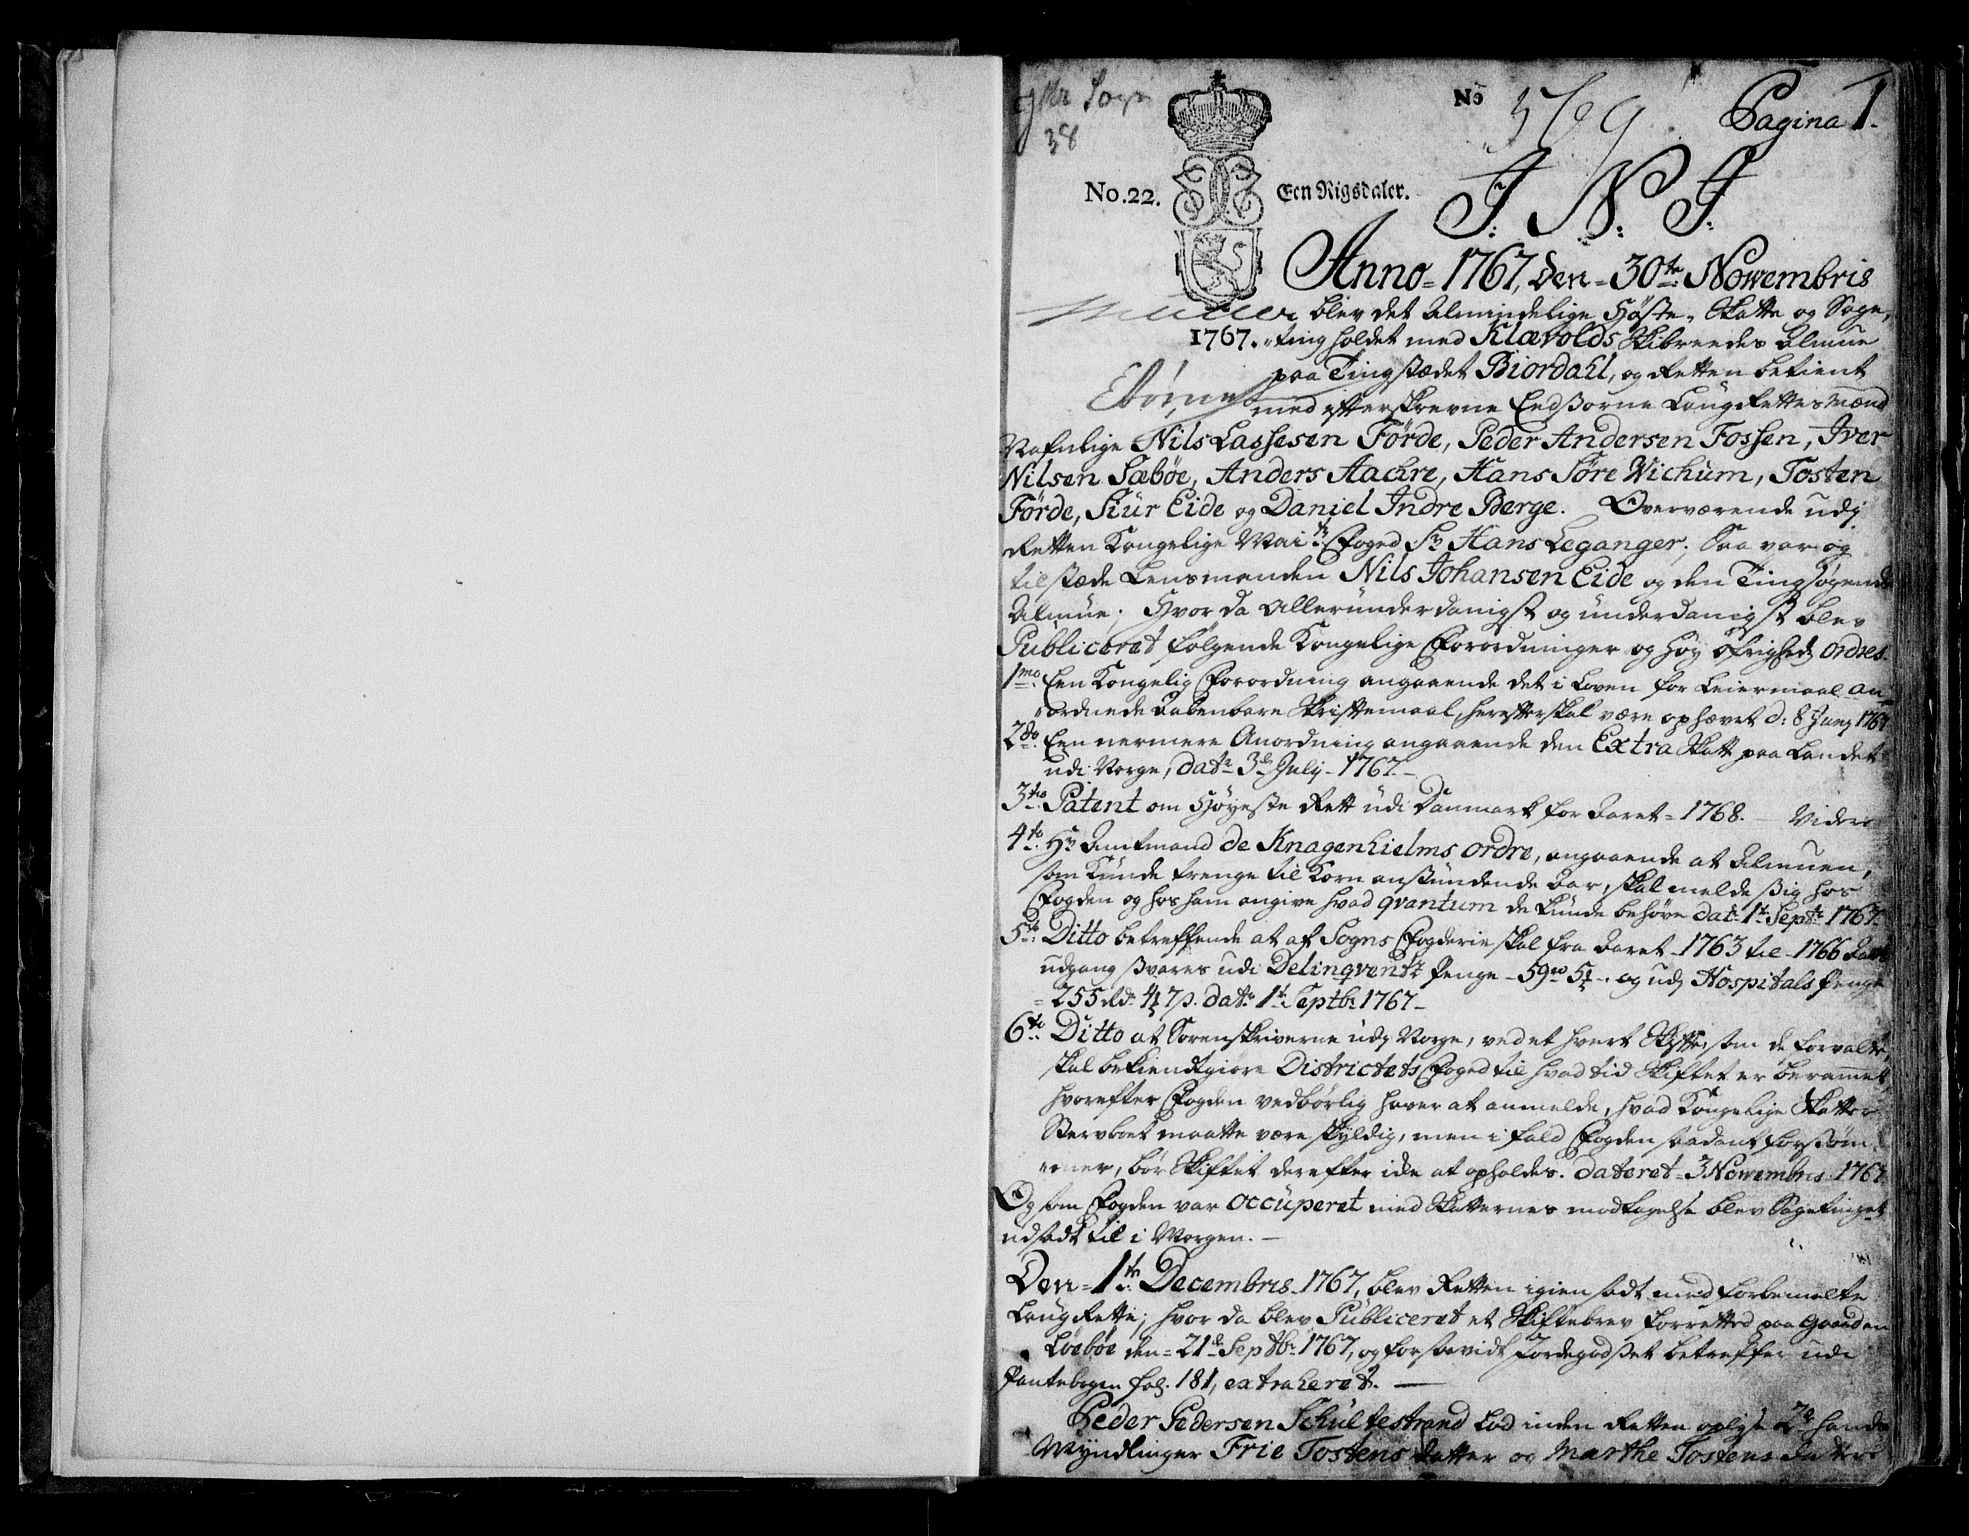 Ytr Sogn
38
No 569 Pagina 1.
No. 22. Een Rigsdaler. J: N: J:
Anno 1767, Den 30te Nowembris
blev det almindelige Høste, Skatte og Sage,
1767. ting holdet med Klævolds Skibreedes Almue
paa Tingstædet Biordahl, og Retten betient
med efterskrevne Eedsorne LaugRettesMænd
Nafnlige Nils Lassesen Förde, Peder Andersen Fossen, Iver
Nilsen Sæbøe, Anders Aachre, Hans Söre Vichum, Tosten
Förde, Siur Eide og Daniel Indre Berge. Overværende udj
Retten Kongelige Maits Foged Sr Hans Leganger; Saa var og
tilstæde Lensmanden Nils Johansen Eide og den Tingsøgende
Almue; Hvor da Allerunderdanigst og underdanigst blev
Publiceret følgende Kongelige Forordninger og Høy Øfrigheds Ordres.
1mo Een Kongelig Forordning angaaende det i Loven for Leiermaal an
ordnede Aabenbare Skriftemaal, herefter skal være ophævet d: 8 Junj 1767
2do Een nermere Anordning angaaende den Extra Skatt paa Landet
udi Norge, dat 3de July 1767.
3tio Patent om Høyeste Rett udi Danmark for Aaret 1768. Videre
4to Hr Amtmand de Knagenhielms ordre, angaaende at Almuen,
som kunde trenge til Korn anstundende Aar, skal melde sig hos
Fogden og hos ham angive hvad qvantum de kunde behøve dat 1te Septr 1767.
5to Ditto betreffende at af Sogns Fogderie skal fra Aaret 1763 til 1766 Aars
udgang svares udi Delinqvent Penge 59 5 og udj Hospitals Penge
255 Rdr 4 7 s. dat 1te Septbr 1767
6to Ditto at Sorenskriverne udj Norge, ved et hvert Skifte, som de forvalte,
skal bekiendtgiøre Districtets Foged til hvad tid Skiftet er berammet,
hvorefter Fogden vedbørlig haver at anmelde, hvad Kongelige Skatter
Stervboet maatte være skyldig, men i fald Fogden saadant forsøm
mer, bør Skiftet derefter ikke at opholdes. dateret 3 Nowembris 1767
Og som Fogden var occuperet med Skatternes modtagelse blev Sagetinget
udsadt til i Morgen.
Den 1te Decembris 1767, blev Retten igien sadt med forbemelte
LaugRette; hvor da blev Publiceret et Skiftebrev forrettet paa Gaarden
Löebøe den 21de Septbr 1767, og forsaavidt Jordegodset betreffer udi
Pantebogen fol. 181, extraheret.
Peder Pedersen Schultestrand lod inden Retten oplyse 2de hands
Myndlinger Frie Tostens datter og Marthe Tostens datters